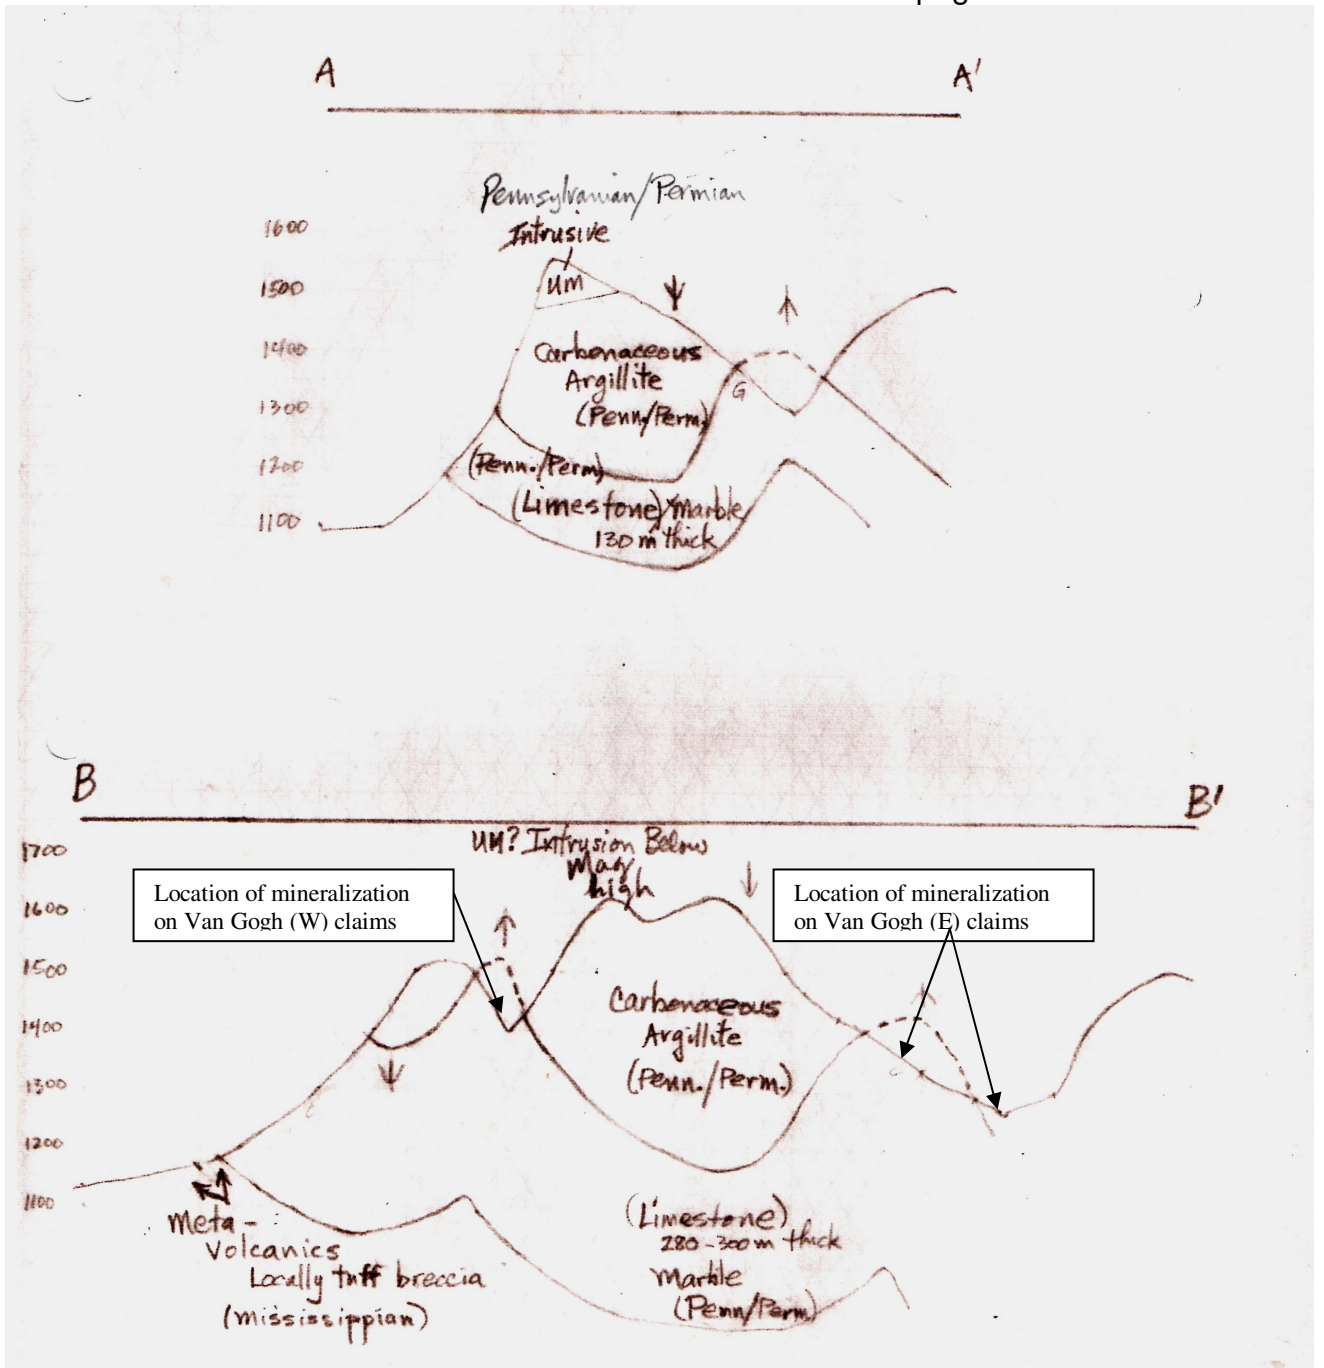 A A'
Pennsylvanian/Permian
Intrusive
1600
1500
1400
1300
1200
1100
um
Carbonaceous
Argillite
(Penn./Perm.)
G
(Penn./Perm)
(Limestone) marble
130 m thick
B B'
UM? Intrusion Below
Mag
high
1700
1600
1500
1400
1300
1200
1100
Location of mineralization
on Van Gogh (W) claims
Location of mineralization
on Van Gogh (E) claims
Carbonaceous
Argillite
(Penn./Perm.)
Meta-
Volcanics
Locally tuff breccia
(mississippian)
(Limestone)
280-300m thick
Marble
(Penn/Perm)